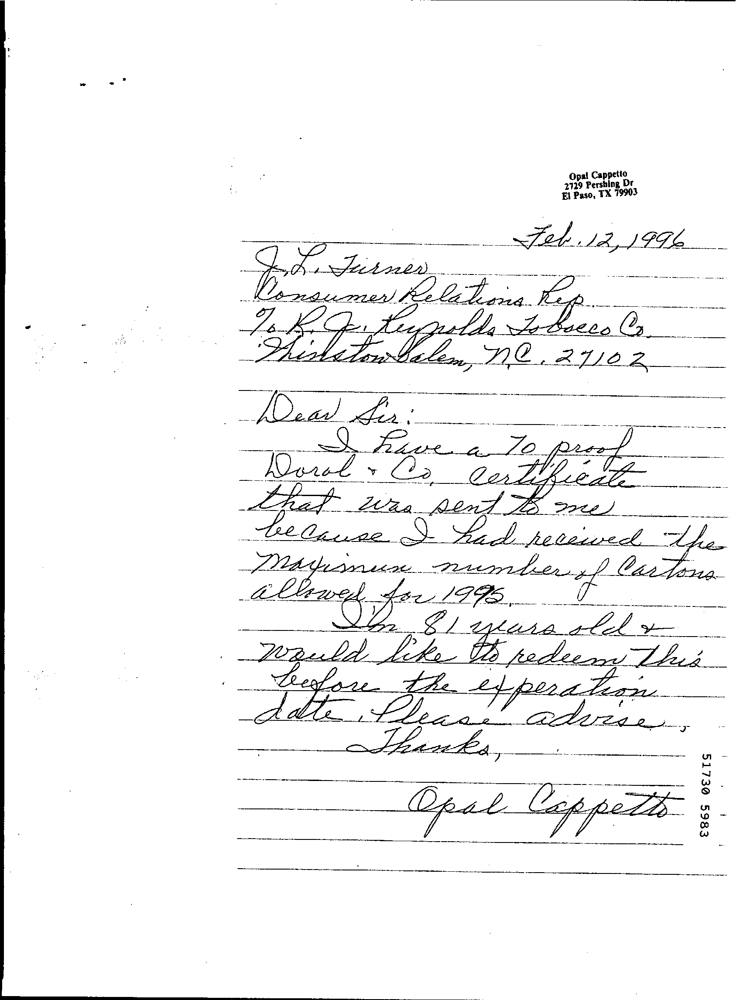 Opal Cappetto
2729 Pershing Dr
El Paso, TX 79903
Feb. 12, 1996
J. L. Turner
Consumer Relations Rep
% R. J. Reynolds Tobacco Co.
Winston Salem, N.C. 27102
Dear Sir:
I have a 70 proof
Doral & Co. certificate
that was sent to me
because I had received the
maximun number of Cartons
allowed for 1995.
I'm 81 years old &
would like to redeem this
before the experation
date. Please advise,
Thanks,
Opal Cappetto
51730 5983